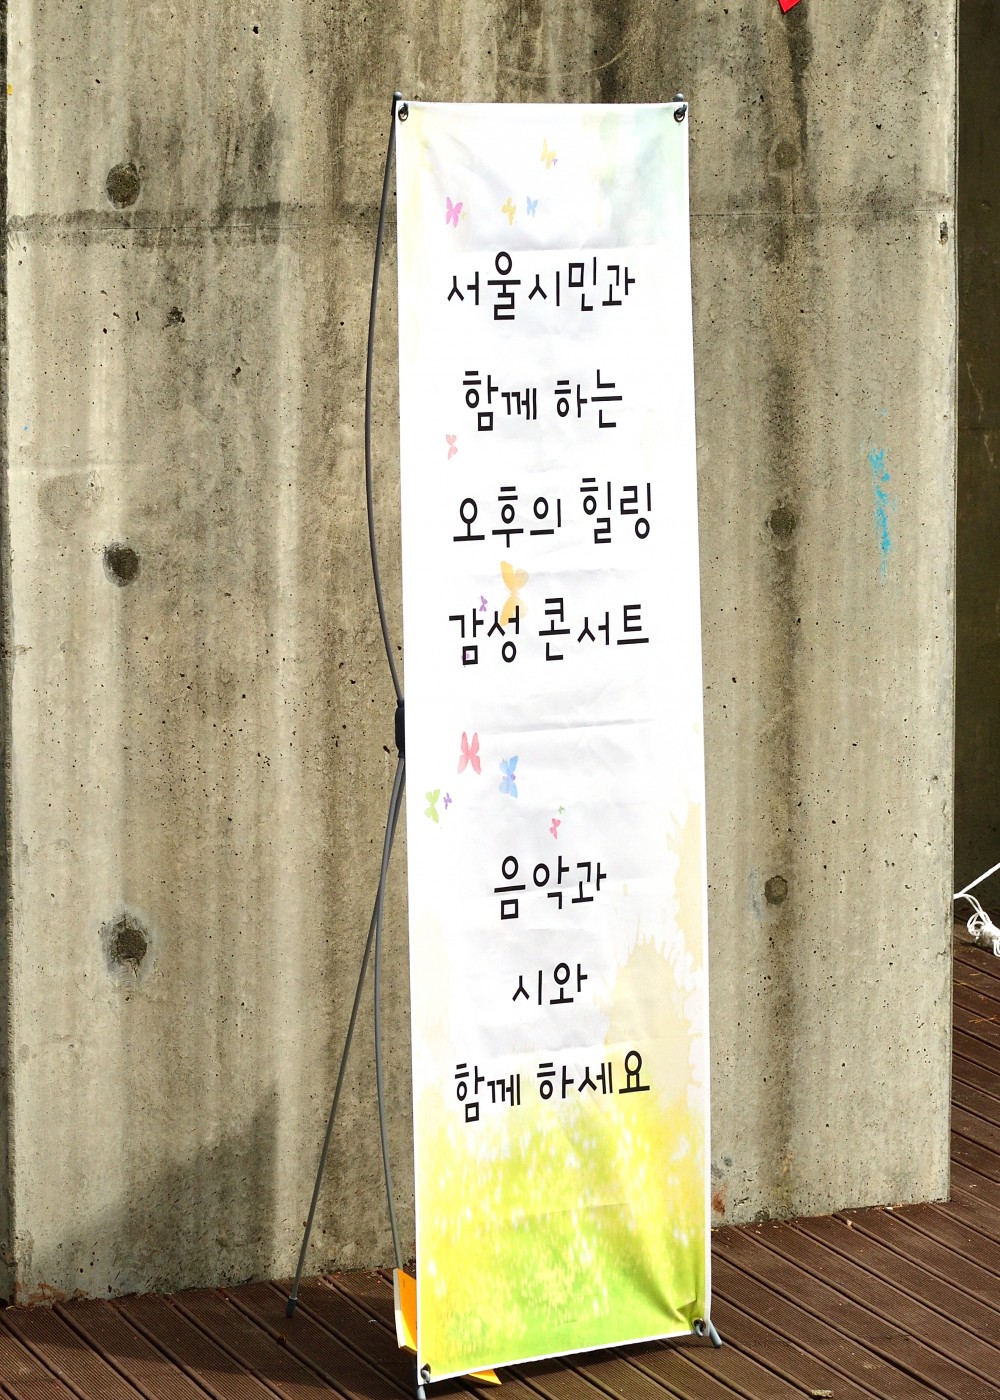 서울시민과
함께 하는
오후의 힐링
감성 콘서트
음악과
시와
함께 하세요